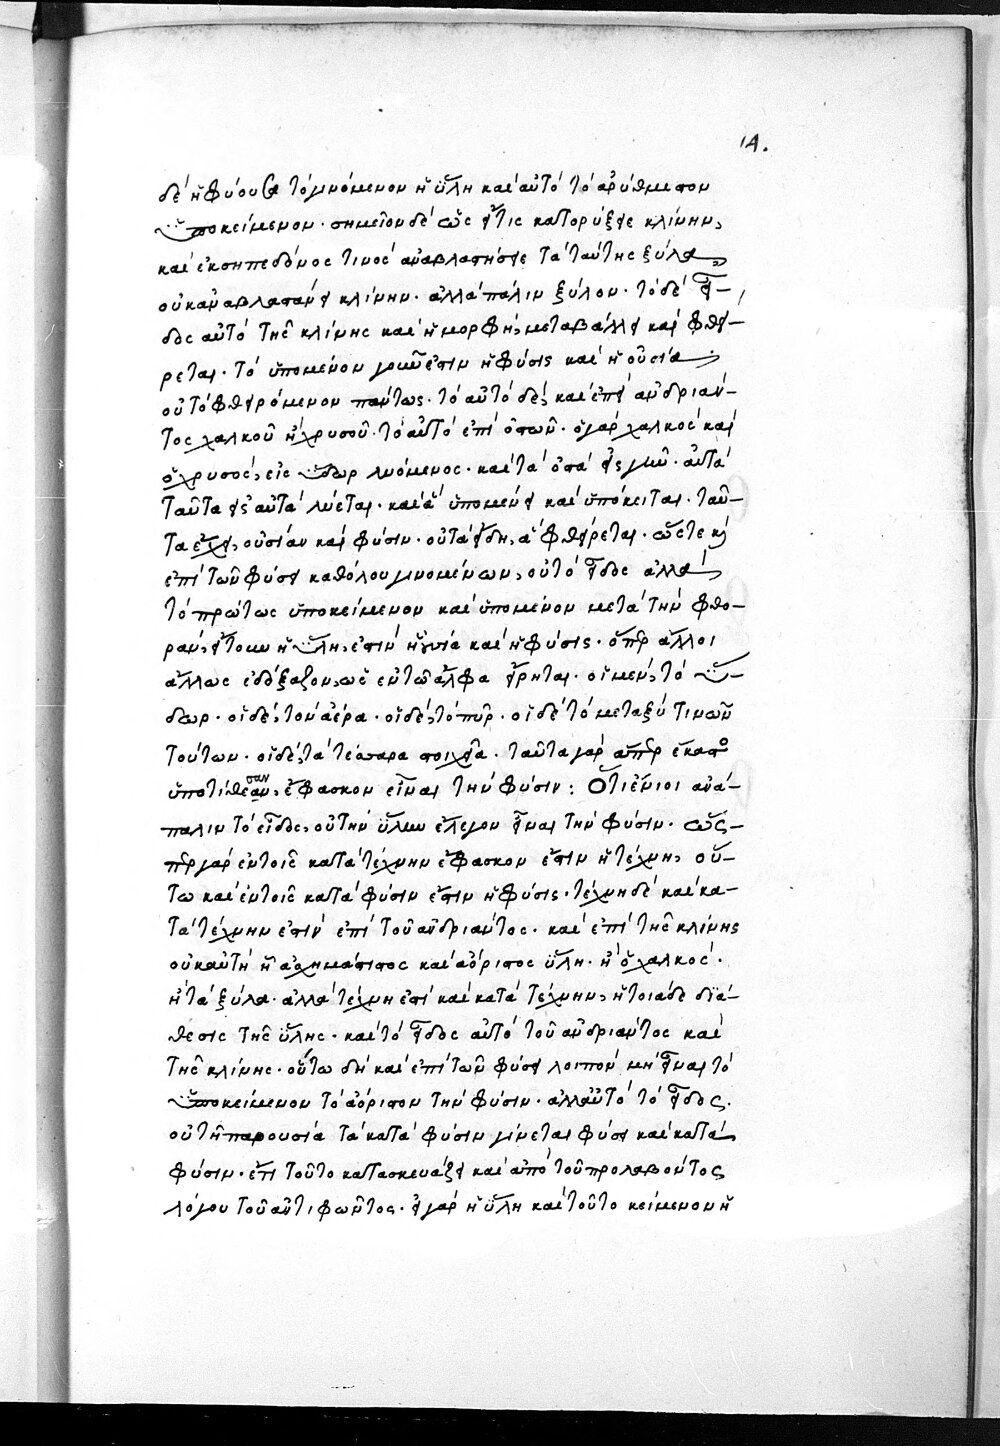 14.
δὲ ἡ φύουσα τὸ γινόμενον ἡ ὕλη καὶ αὐτὸ τὸ ἀρύθμιστον
ὑποκείμενον· σημεῖον δὲ ὡς εἴ τις κατορύξειε κλίνην,
καὶ ἐκ σηπεδόνος τινὸς ἀναβλαστήσειε τὰ ταύτης ξύλα,
οὐκ ἀναβλαστάνει κλίνην· ἀλλὰ πάλιν ξύλον· τὸ δὲ εἶ-
δος αὐτὸ τῆς κλίνης καὶ ἡ μορφὴ, μεταβάλλει καὶ φθεί-
ρεται· τὸ ὑπομένον γοῦν ἐστὶν ἡ φύσις καὶ ἡ οὐσία
οὐ τὸ φθειρόμενον πάντως· τὸ αὐτὸ δὲ, καὶ ἐπὶ ἀνδριάν-
τος χαλκοῦ ἢ χρυσοῦ· τὸ αὐτὸ ἐπὶ ὀστῶν· ὁ γὰρ χαλκὸς καὶ
ὁ χρυσὸς, εἰς ὕδωρ λυόμενος· καὶ τὰ ὀστᾶ εἰς γῆν· αὐτὰ
ταῦτα εἰς αὐτὰ λύεται· καὶ ἃ ὑπομένει καὶ ὑπόκειται· ταῦ-
τα ἔχει, οὐσίαν καὶ φύσιν· οὐ τὰ εἴδη, ἃ φθείρεται· ὥστε καὶ
ἐπὶ τῶν φύσει καθόλου γινομένων, οὐ τὸ εἶδος ἀλλὰ
τὸ πρώτως ὑποκείμενον καὶ ὑπομένον μετὰ τὴν φθο-
ρὰν, εἴτουν ἡ ὕλη, ἐστὶν ἡ οὐσία καὶ ἡ φύσις· ὅπερ ἄλλοι
ἄλλως ἐδόξαζον, ὡς ἐν τῶ ἄλφα εἴρηται· οἱ μὲν, τὸ ὕ-
δωρ· οἱ δὲ, τὸν ἀέρα· οἱ δὲ, τὸ πῦρ· οἱ δὲ τὸ μεταξὺ τινῶν
τούτων· οἱ δὲ, τὰ τέσσαρα στοιχεῖα· ταῦτα γὰρ ἅπερ ἕκαστο
ὑποτίθεσαν, ἔφασκον εἶναι τὴν φύσιν: Ὅτι ἔνιοι ἀνά-
παλιν τὸ εἶδος, οὐ τὴν ὕλην ἔλεγον εἶναι τὴν φύσιν· ὥς-
περ γὰρ ἐν τοῖς κατὰ τέχνην ἔφασκον ἔστιν ἡ τέχνη, οὕ-
τω καὶ ἐν τοῖς κατὰ φύσιν ἔστιν ἡ φύσις· τέχνη δὲ καὶ κα-
τὰ τέχνην ἐστὶν ἐπὶ τοῦ ἀνδριάντος· καὶ ἐπὶ τῆς κλίνης
οὐκ αὐτὴ ἡ ἀσχημάτιστος καὶ ἀόριστος ὕλη· ἢ ὁ χαλκὸς·
ἢ τὰ ξύλα· ἀλλὰ τέχνη ἐστὶ καὶ κατὰ τέχνην, ἡ τοιάδε διά-
θεσις τῆς ὕλης· καὶ τὸ εἶδος αὐτὸ τοῦ ἀνδριάντος καὶ
τῆς κλίνης· οὕτω δὴ καὶ ἐπὶ τῶν φύσει λοιπὸν μὴ εἶναι τὸ
ὑποκείμενον τὸ ἀόριστον τὴν φύσιν· ἀλλ' αὐτὸ τὸ εἶδος·
οὗ τῇ παρουσία τὰ κατὰ φύσιν γίνεται φύσει καὶ κατὰ
φύσιν· ἔτι τοῦτο κατασκευάζει καὶ ἀπὸ τοῦ προλαβόντος
λόγου τοῦ ἀντιφῶντος· εἰ γὰρ ἡ ὕλη καὶ τοῦτο κείμενον ἡ